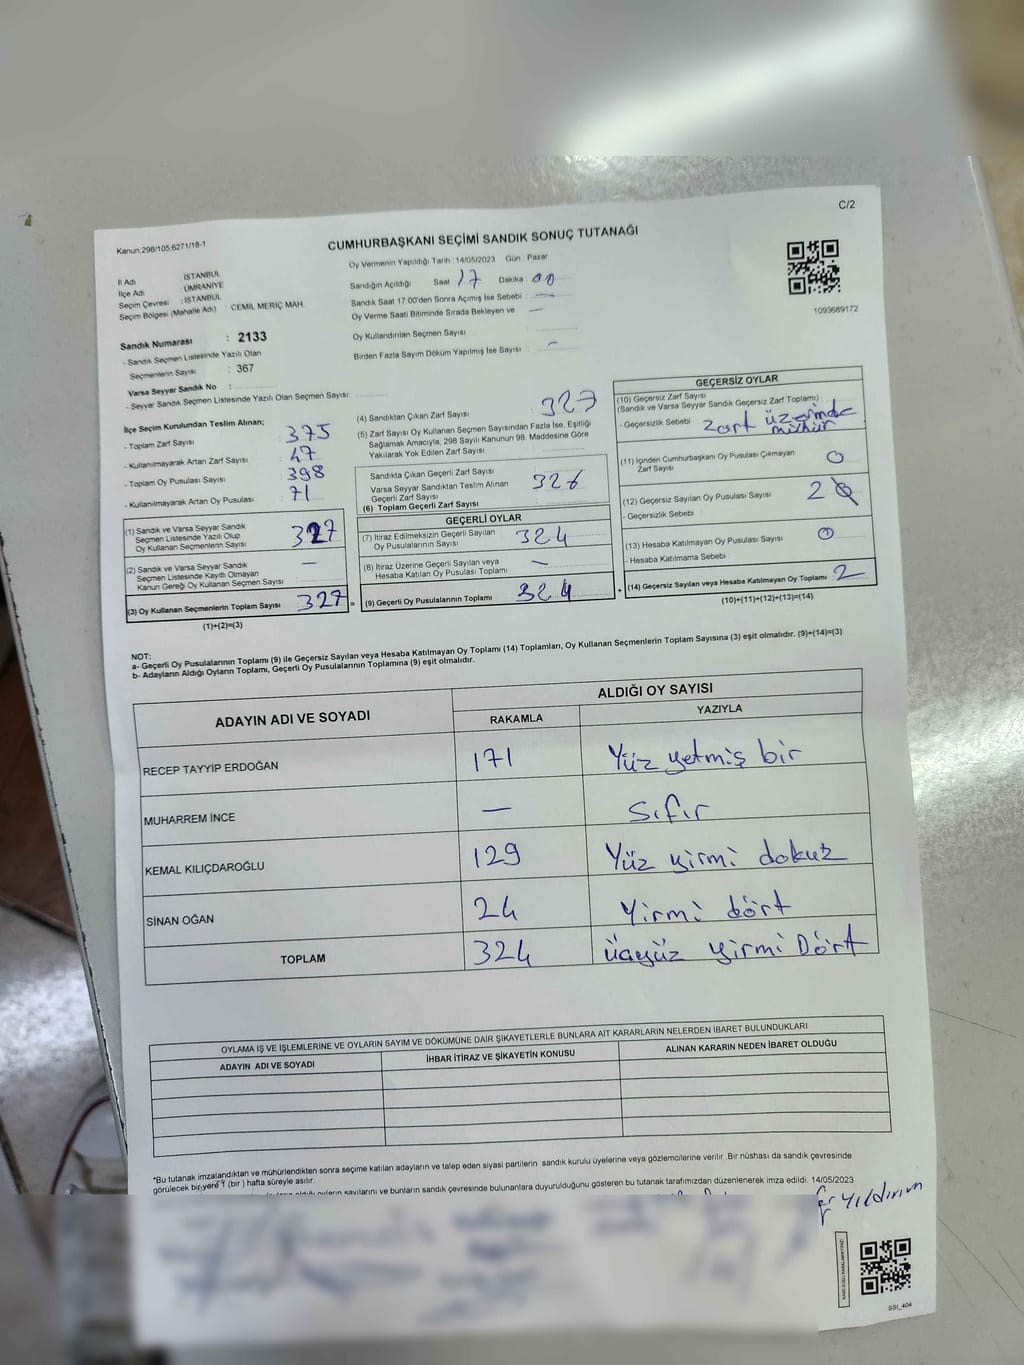 C/2
Kanun 298/105,6271/18-1
CUMHURBAŞKANI SEÇİMİ SANDIK SONUÇ TUTANAĞI
İl Adı : İSTANBUL
İlçe Adı : ÜMRANİYE
Seçim Çevresi : İSTANBUL
Seçim Bölgesi (Mahalle Adı) : CEMİL MERİÇ MAH.
Oy Vermenin Yapıldığı Tarih : 14/05/2023 Gün : Pazar
Sandığın Açıldığı Saat 17 Dakika 00
Sandık Saat 17:00'den Sonra Açılmış İse Sebebi : —
Oy Verme Saati Bitiminde Sırada Bekleyen ve —
Oy Kullandırılan Seçmen Sayısı
Birden Fazla Sayım Döküm Yapılmış İse Sayısı : —
1093689172
Sandık Numarası : 2133
- Sandık Seçmen Listesinde Yazılı Olan
Seçmenlerin Sayısı : 367
Varsa Seyyar Sandık No :
- Seyyar Sandık Seçmen Listesinde Yazılı Olan Seçmen Sayısı:
İlçe Seçim Kurulundan Teslim Alınan;
- Toplam Zarf Sayısı : 375
- Kullanılmayarak Artan Zarf Sayısı : 47
- Toplam Oy Pusulası Sayısı : 398
- Kullanılmayarak Artan Oy Pusulası : 71
(1) Sandık ve Varsa Seyyar Sandık
Seçmen Listesinde Yazılı Olup
Oy Kullanan Seçmenlerin Sayısı : 327
(2) Sandık ve Varsa Seyyar Sandık
Seçmen Listesinde Kayıtlı Olmayan
Kanun Gereği Oy Kullanan Seçmen Sayısı : —
(3) Oy Kullanan Seçmenlerin Toplam Sayısı 327 =
(1)+(2)=(3)
(4) Sandıktan Çıkan Zarf Sayısı : 327
(5) Zarf Sayısı Oy Kullanan Seçmen Sayısından Fazla İse, Eşitliği
Sağlamak Amacıyla, 298 Sayılı Kanunun 98. Maddesine Göre
Yakılarak Yok Edilen Zarf Sayısı
Sandıkta Çıkan Geçerli Zarf Sayısı : 326
Varsa Seyyar Sandıktan Teslim Alınan
Geçerli Zarf Sayısı
(6) Toplam Geçerli Zarf Sayısı
GEÇERLİ OYLAR
(7) İtiraz Edilmeksizin Geçerli Sayılan
Oy Pusulalarının Sayısı : 324
(8) İtiraz Üzerine Geçerli Sayılan veya
Hesaba Katılan Oy Pusulası Toplamı : —
(9) Geçerli Oy Pusulalarının Toplamı : 324 +
GEÇERSİZ OYLAR
(10) Geçersiz Zarf Sayısı
(Sandık ve Varsa Seyyar Sandık Geçersiz Zarf Toplamı)
- Geçersizlik Sebebi : Zarf üzerinde
mühür
(11) İçinden Cumhurbaşkanı Oy Pusulası Çıkmayan
Zarf Sayısı : 0
(12) Geçersiz Sayılan Oy Pusulası Sayısı : 2
- Geçersizlik Sebebi :
(13) Hesaba Katılmayan Oy Pusulası Sayısı :
- Hesaba Katılmama Sebebi :
(14) Geçersiz Sayılan veya Hesaba Katılmayan Oy Toplamı : 2
(10)+(11)+(12)+(13)=(14)
NOT:
a- Geçerli Oy Pusulalarının Toplamı (9) ile Geçersiz Sayılan veya Hesaba Katılmayan Oy Toplamı (14) Toplamları, Oy Kullanan Seçmenlerin Toplam Sayısına (3) eşit olmalıdır. (9)+(14)=(3)
b- Adayların Aldığı Oyların Toplamı, Geçerli Oy Pusulalarının Toplamına (9) eşit olmalıdır.
ADAYIN ADI VE SOYADI
ALDIĞI OY SAYISI
RAKAMLA YAZIYLA
RECEP TAYYİP ERDOĞAN 171 Yüz yetmiş bir
MUHARREM İNCE — Sıfır
KEMAL KILIÇDAROĞLU 129 Yüz yirmi dokuz
SİNAN OĞAN 24 Yirmi dört
TOPLAM 324 üçyüz yirmi Dört
OYLAMA İŞ VE İŞLEMLERİNE VE OYLARIN SAYIM VE DÖKÜMÜNE DAİR ŞİKAYETLERLE BUNLARA AİT KARARLARIN NELERDEN İBARET BULUNDUKLARI
ADAYIN ADI VE SOYADI İHBAR İTİRAZ VE ŞİKAYETİN KONUSU ALINAN KARARIN NEDEN İBARET OLDUĞU
*Bu tutanak imzalandıktan ve mühürlendikten sonra seçime katılan adayların ve talep eden siyasi partilerin sandık kurulu üyelerine veya gözlemcilerine verilir .Bir nüshası da sandık çevresinde
görülecek bir yere 1 (bir) hafta süreyle asılır.
aldığı oyların sayılarını ve bunların sandık çevresinde bulunanlara duyurulduğunu gösteren bu tutanak tarafımızdan düzenlenerek imza edildi. 14/05/2023
Yıldırım
SSI_404